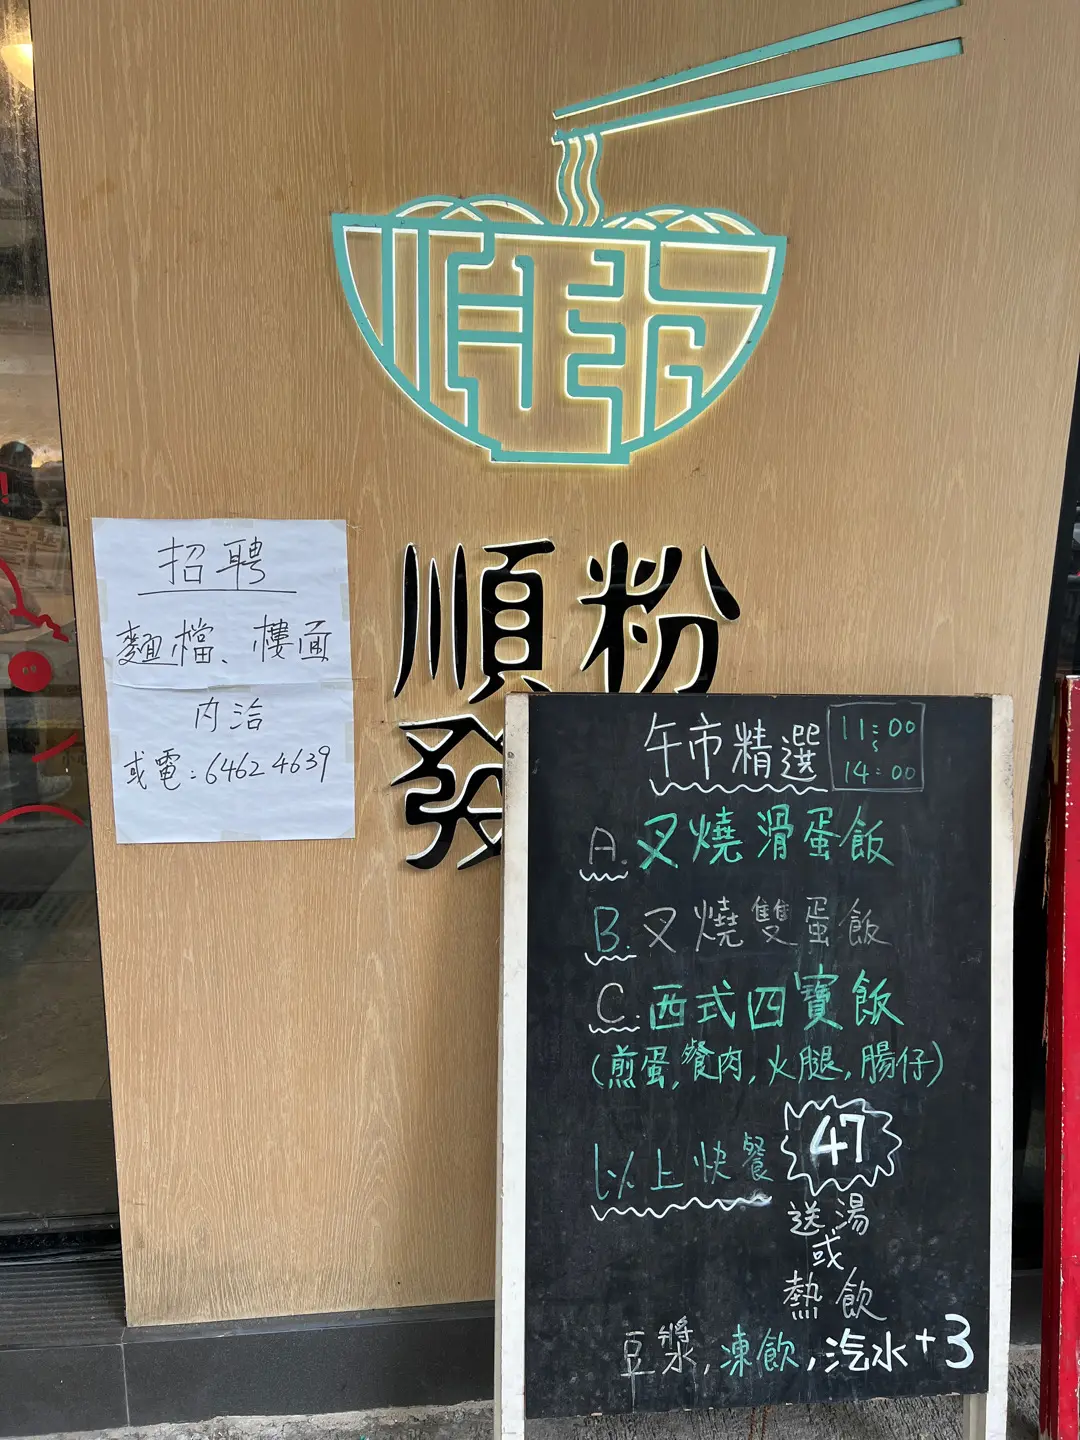 順粉
發
招聘
麵檔、樓面
內洽
或電:64624639
午市精選
11:00
~
14:00
A. 叉燒滑蛋飯
B. 叉燒雙蛋飯
C. 西式四寶飯
(煎蛋,餐肉,火腿,腸仔)
以上快餐 47
送湯
或
熱飲
豆漿,凍飲,汽水+3